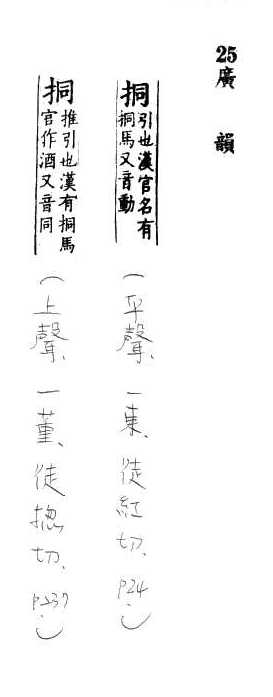 25廣韻
挏引也漢官名有挏馬又音動(平聲、一東、徒紅切、P24.)
挏推引也漢有挏馬官作酒又音同(上聲、一董、徒揔切、P237.)